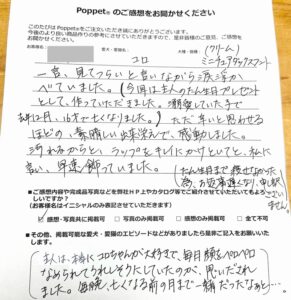 Poppet®のご感想をお聞かせください
このたびはPoppetをご注文いただき誠にありがとうございます。
今後のより良い商品作りの参考にさせていただきますので、是非皆様のご意見、ご感想を
お聞かせください。
お客様名
愛犬・愛猫名:
コロ
犬種・猫種:
(クリーム)
ミニチュアダックスフント
一言、見てつらいと言いながら涙
べていました。(今回は主人のたん生日プレゼント
として、作っていただきました。
年12月に、16才で亡くなりました。)ただ
ほどの、素晴しい出来栄えで、感動しました。
汚れるからと、ラップをキレイにかけといてと、私に
言い、早速飾っていました。
(たん生日まで
為、お返事遅くなり、申し訳
ございません)
■ご感想内容や完成品写真などを弊社HP上やカタログ等でご紹介させていただいてもよろ
しいですか?
(お客様名はイニシャルのみ表記させていただきます)
感想・写真共に掲載可
写真のみ掲載可
感想のみ掲載可
全て不可
■その他、掲載可能な愛犬・愛猫のエピソードなどがありましたら是非ご記入をお願いいたします
主人は、本当にコロちゃんが大好きで、毎日顔をペロペロ
なめられてうれしそうにしていたのが、思いだされ
ました。毎晩、亡くなる前の月まで一緒だったなあと…